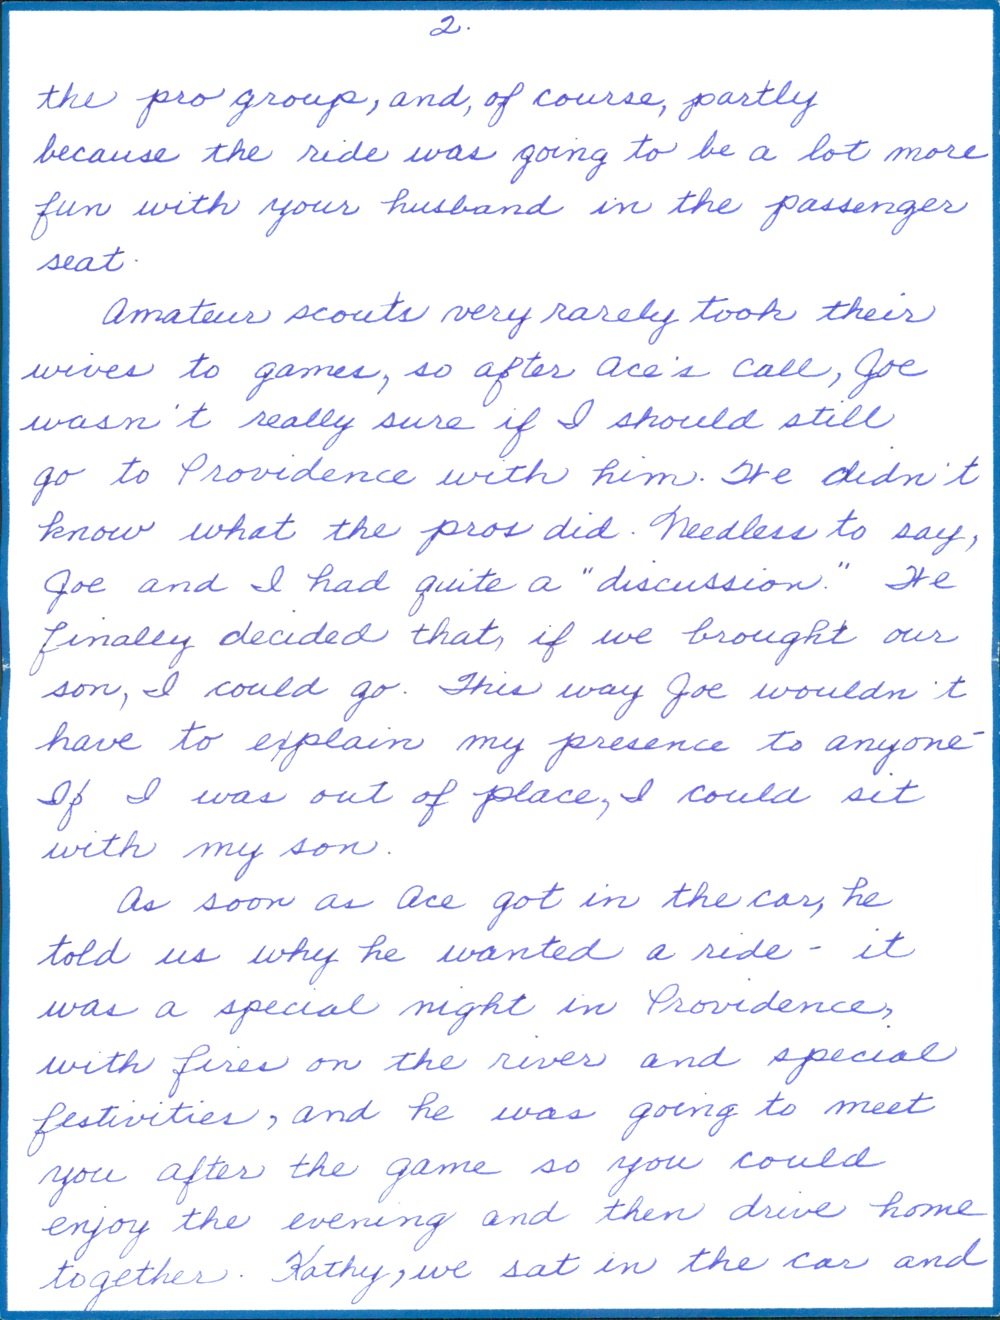 2.
the pro group, and, of course, partly
because the ride was going to be a lot more
fun with your husband in the passenger
seat.
Amateur scouts very rarely took their
wives to games, so after Ace's call, Joe
wasn't really sure if I should still
go to Providence with him. We didn't
know what the pros did. Needless to say,
Joe and I had quite a "discussion." We
finally decided that, if we brought our
son, I could go. This way Joe wouldn't
have to explain my presence to anyone-
If I was out of place, I could sit
with my son.
As soon as Ace got in the car, he
told us why he wanted a ride - it
was a special night in Providence,
with fires on the river and special
festivities, and he was going to meet
you after the game so you could
enjoy the evening and then drive home
together. Kathy, we sat in the car and